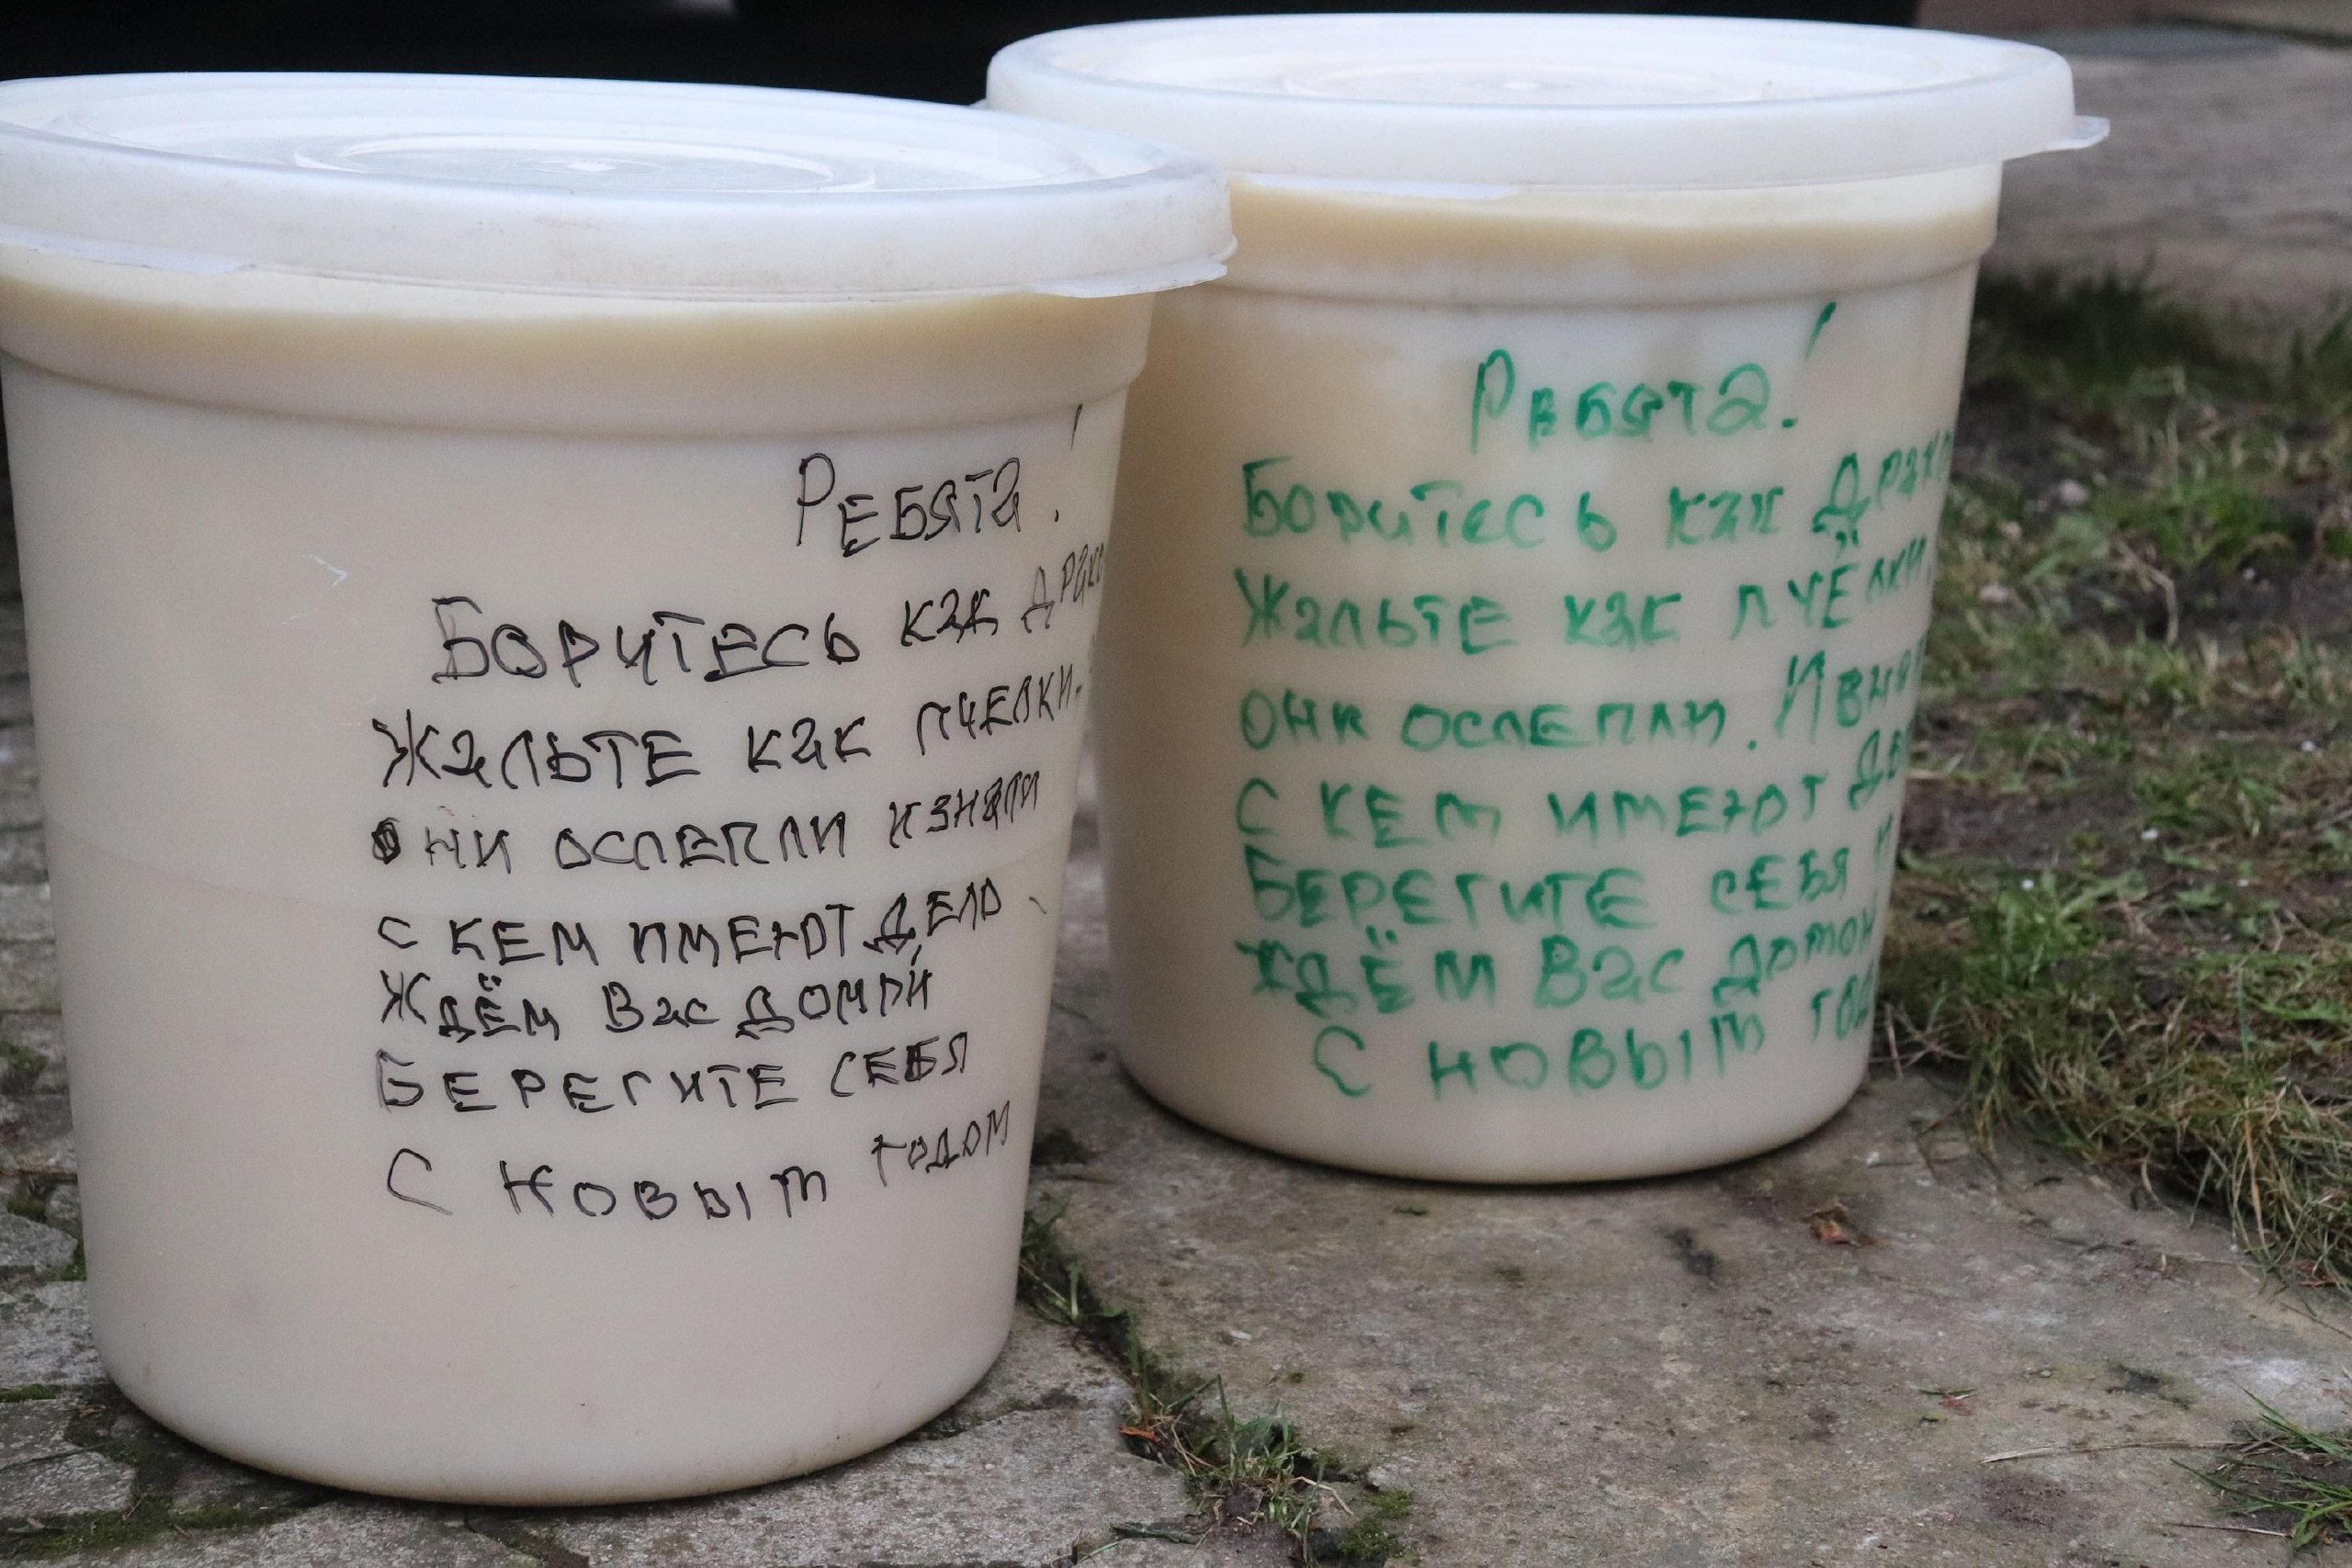 Ребята!
Боритесь как
Жальте как пчелки.
они ослепли и знали
с кем имеют дело
Ждём Вас домой
Берегите себя
С новым годом
Ребята!
Боритесь как
Жальте как пчёлки.
они ослепли.
с кем имеют
Берегите себя и
ждём Вас домой
С новым